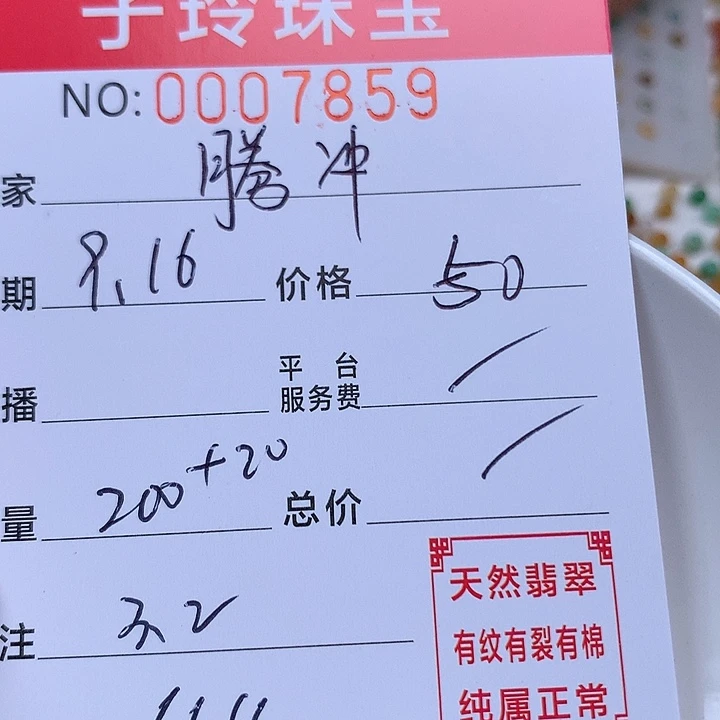 子玲珠宝
NO:0007859
家 腾冲
期 9.16 价格 50
播 平台服务费 /
量 200+20 总价 /
注 3.2
天然翡翠
有纹有裂有棉
纯属正常